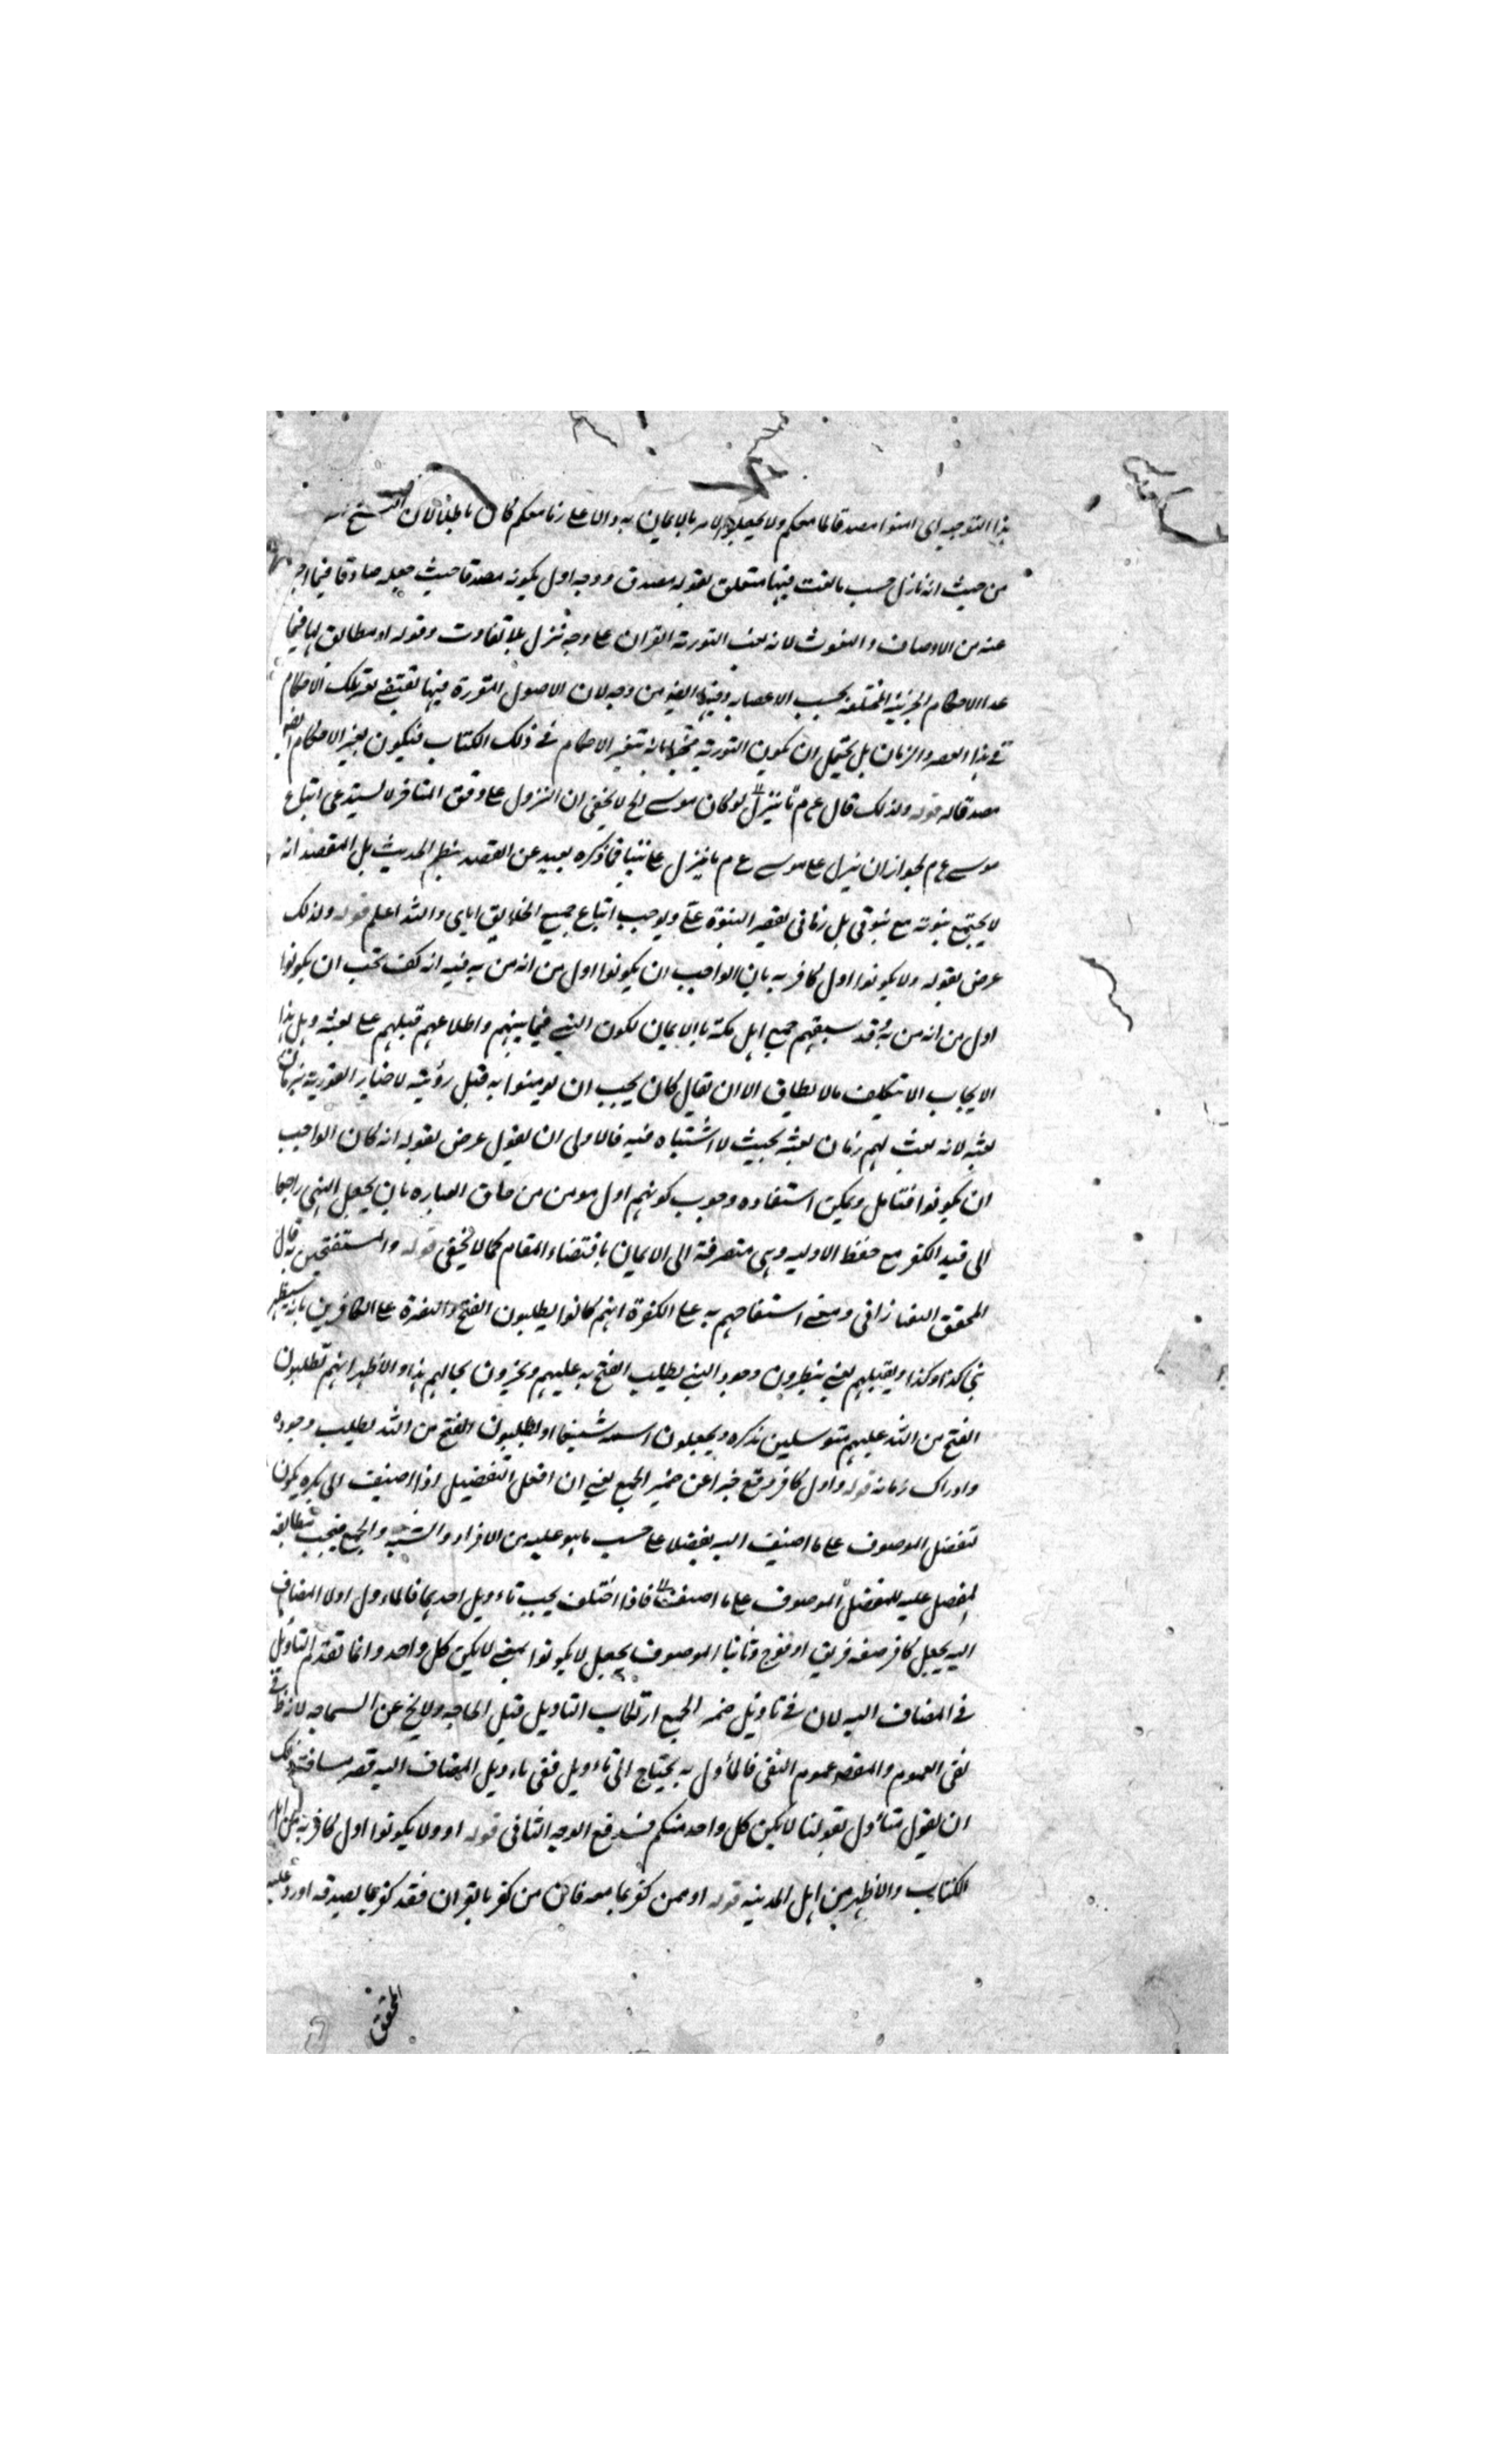 هذا التوجيه اى امنوا مصدقا لما معكم ولا يجعل الامر بالايمان به والا على ما معكم كان باطلا لان
من حيث انه نازل حسب ما نعت فيها متعلق بقوله مصدق ووجه اول بكونه مصدقا حيث جعله صادقا فيما اخبر
عنه من الاوصاف والنعوت لانه نعت التورية القران على وجه نزل بلا تفاوت وقوله او مطابق لها فيما
عدا الاحكام الجزئية المختلفة بحسب الاعصار وفيها ايضه من وجه لان الاصول المقررة فيها تقتضى تلك الاحكام
فى هذا العصر والزمان بل يحتمل ان يكون التورية مخبرا بانه تتغير الاحكام فى ذلك الكتاب فيكون تغير الاحكام ايضه
مصدقا له قوله ولذلك قال عم لو كان موسى الخ لا يخفى ان النزول على وفق المتاخر لا يستدعى اتباع
موسى عم لجواز ان ينزل على موسى عم ما ينزل على نبينا فما ذكره بعيد عن القصد بنظم الحديث بل المقصد انه
لا يجتمع نبوته مع نبوتى بل زمانى يقصر النبوة على ويوجب اتباع جميع الخلايق اياى والله اعلم قوله ولذلك
عرض بقوله ولا يكونوا اول كافر به بان الواجب ان يكونوا اول من امن به فيه انه كيف يجب ان يكونوا
اول من امن به وقد سبقهم جميع اهل مكة بالايمان لكون النبى فيما بينهم واطلاعهم قبلهم على بعثه وهل هذا
الايجاب الا تكليف ما لا يطاق الا ان يقال كان يجب ان يومنوا به قبل رؤيته لاخبار التورية بزمان
بعثه لانه بعث لهم زمان بعثه بحيث لا اشتباه فيه فالاولى ان يقول عرض بقوله انه كان الواجب
ان يكونوا فتامل ويمكن استفاده وجوب كونهم اول مومن من حاق العباره بان يجعل النهى راجعا
الى قيد الكفر مع حفظ الاوليه وهى متصرفة الى الايمان باقتضاء المقام كما لا يخفى قوله والمستفتحين به قال
المحقق التفتازانى ومعنى استفتاحهم به على الكفرة انهم كانوا يطلبون الفتح والنصرة على الكافرين بانه سيظهر
نبى كذا وكذا ويقتلهم يعنى ينتظرون وجود النبى بطلب الفتح به عليهم ويخبرون بحالهم هذا والاظهر انهم يطلبون
الفتح من الله عليهم متوسلين بذكره ويجعلون اسمه شفيعا او يطلبون الفتح من الله بطلب وجوده
وادراك زمانه قوله واول كافر وقع خبرا عن ضمير الجمع يعنى ان افعل التفضيل اذا اضيف الى نكره يكون
لتفضيل الموصوف على ما اضيف اليه بفضلا على حسب ما هو عليه من الافراد والتثنيه والجمع فيجب مطابقه
المفضل عليه للمفضل الموصوف على ما اضيف فاذا اختلف يجب تاويل احدهما فالماول اولا المضاف
اليه بجعل كافر صفه فريق او فوج وثانيا الموصوف بجعل لا يكونوا بمعنى لا يكن كل واحد وانما تقدم التاويل
فى المضاف اليه لان فى تاويل ضمير الجمع ارتكاب التاويل قبل الحاجه ولا يخ عن السماجه لانه فى
نفى العموم والمقصد عموم النفى فالماول به يحتاج الى تاويل ففى تاويل المضاف اليه قصر مسافة ولك
ان يقول متاول بقولنا لا يكن كل واحد منكم فيندفع الوجه الثانى قوله او ولا يكونوا اول كافر به من اهل
الكتاب والاظهر من اهل المدينه قوله او ممن كفر بما معه فان من كفر بالقران فقد كفر بما يصدقه اورد عليه
المحقق